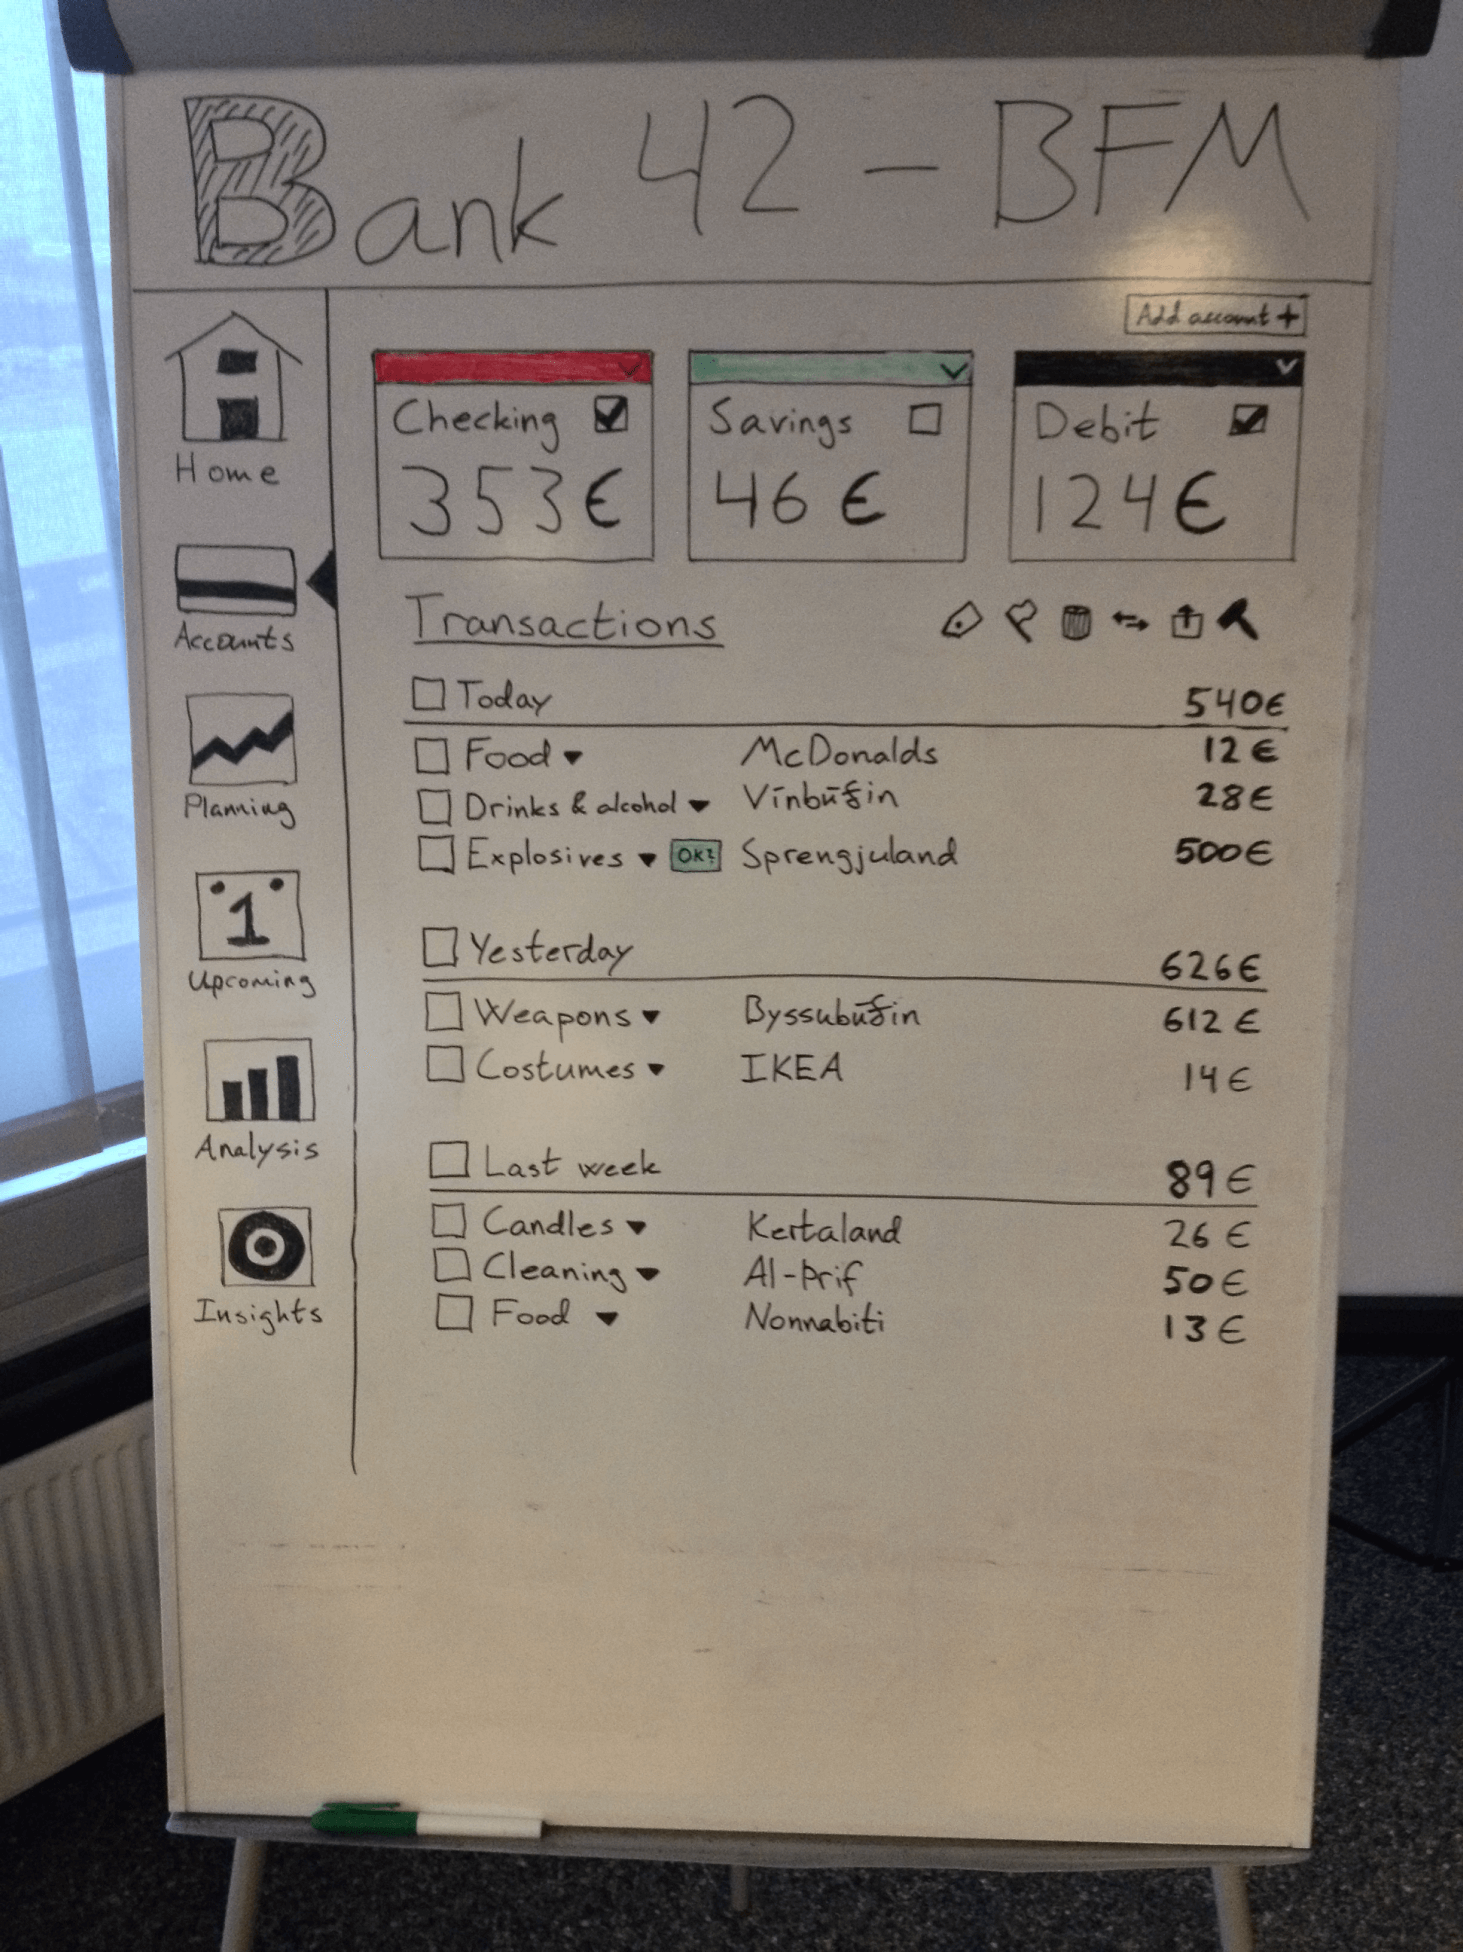 Bank 42 - BFM
Add account +
Home
Accounts
Planning
1
Upcoming
Analysis
Insights
Checking
353€
Savings
46 €
Debit
124€
Transactions
Today 540€
Food McDonalds 12 €
Drinks & alcohol 28€
Explosives OK? Sprengjuland 500€
Yesterday 626€
Weapons 612 €
Costumes IKEA 14 €
Last week 89 €
Candles Kertaland 26 €
Cleaning Al-Þrif 50 €
Food Nonnabiti 13 €